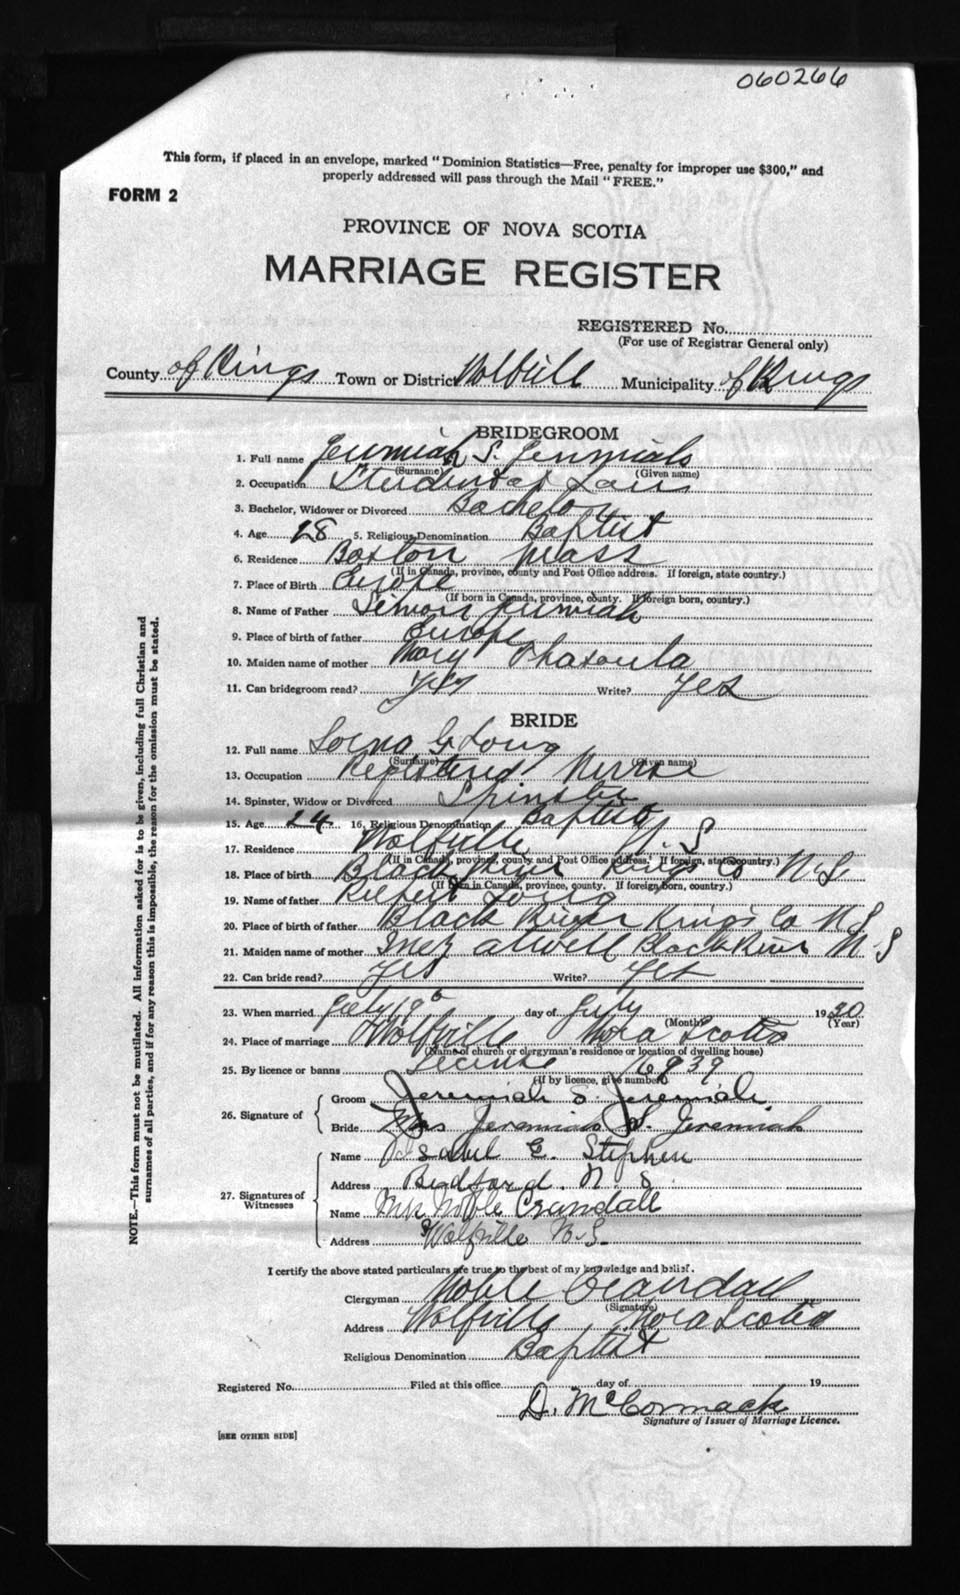 060266
This form, if placed in an envelope, marked "Dominion Statistics—Free, penalty for improper use $300," and
properly addressed will pass through the Mail "FREE."
FORM 2
PROVINCE OF NOVA SCOTIA
MARRIAGE REGISTER
REGISTERED No.
(For use of Registrar General only)
County of Kings Town or District Wolfville Municipality of Kings
BRIDEGROOM
1. Full name Jeremiah S. Jeremiah
(Surname) (Given name)
2. Occupation Student at Law
3. Bachelor, Widower or Divorced Bachelor
4. Age 28 5. Religious Denomination Baptist
6. Residence Boston Mass
(If in Canada, province, county and Post Office address. If foreign, state country.)
7. Place of Birth Europe
(If born in Canada, province, county. If foreign born, country.)
8. Name of Father Simon Jeremiah
9. Place of birth of father Europe
10. Maiden name of mother Mary
11. Can bridegroom read? Yes Write? Yes
BRIDE
12. Full name Lorna G Long
(Surname) (Given name)
13. Occupation Registered Nurse
14. Spinster, Widow or Divorced Spinster
15. Age 24 16. Religious Denomination Baptist
17. Residence Wolfville N. S
(If in Canada, province, county and Post Office address. If foreign, state country.)
18. Place of birth Black River Kings Co N.S.
(If born in Canada, province, county. If foreign born, country.)
19. Name of father Long
20. Place of birth of father Black River Kings Co N S
21. Maiden name of mother Inez Atwell Black River N-S
22. Can bride read? Yes Write? Yes
23. When married July 19 day of July 1930
(Month) (Year)
24. Place of marriage Wolfville Nova Scotia
(Name of church or clergyman's residence or location of dwelling house)
25. By licence or banns License 16939
(If by licence, give number)
26. Signature of
Groom Jeremiah S. Jeremiah
Bride Mrs Jeremiah S. Jeremiah
27. Signatures of Witnesses
Name Isabel E. Stephen
Address Bedford. N. S.
Name Mrs Noble Crandall
Address Wolfville N.S.
I certify the above stated particulars are true to the best of my knowledge and belief.
Clergyman Noble Crandall
(Signature)
Address Wolfville Nova Scotia
Religious Denomination Baptist
Registered No. Filed at this office day of 19
D. McCormack
Signature of Issuer of Marriage Licence.
[SEE OTHER SIDE]
NOTE.—This form must not be mutilated. All information asked for is to be given, including full Christian and
surnames of all parties, and if for any reason this is impossible, the reason for the omission must be stated.